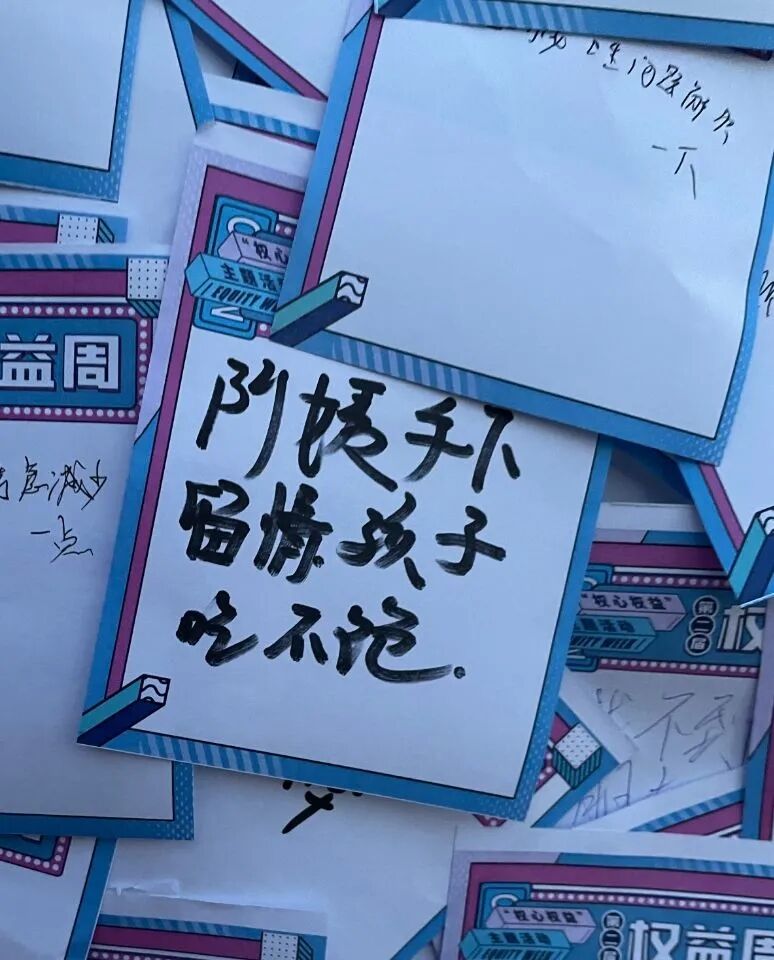 问题解决
一下
"权心
主题活
EQUITY WE
益周
阿姨手下
留情孩子
吃不饱.
减少
一点
"权心权益"
主题活动
EQUITY WEEK
第二届
权
不到
"权心权益"
主题活动
EQUITY WEEK
第二届
权益周